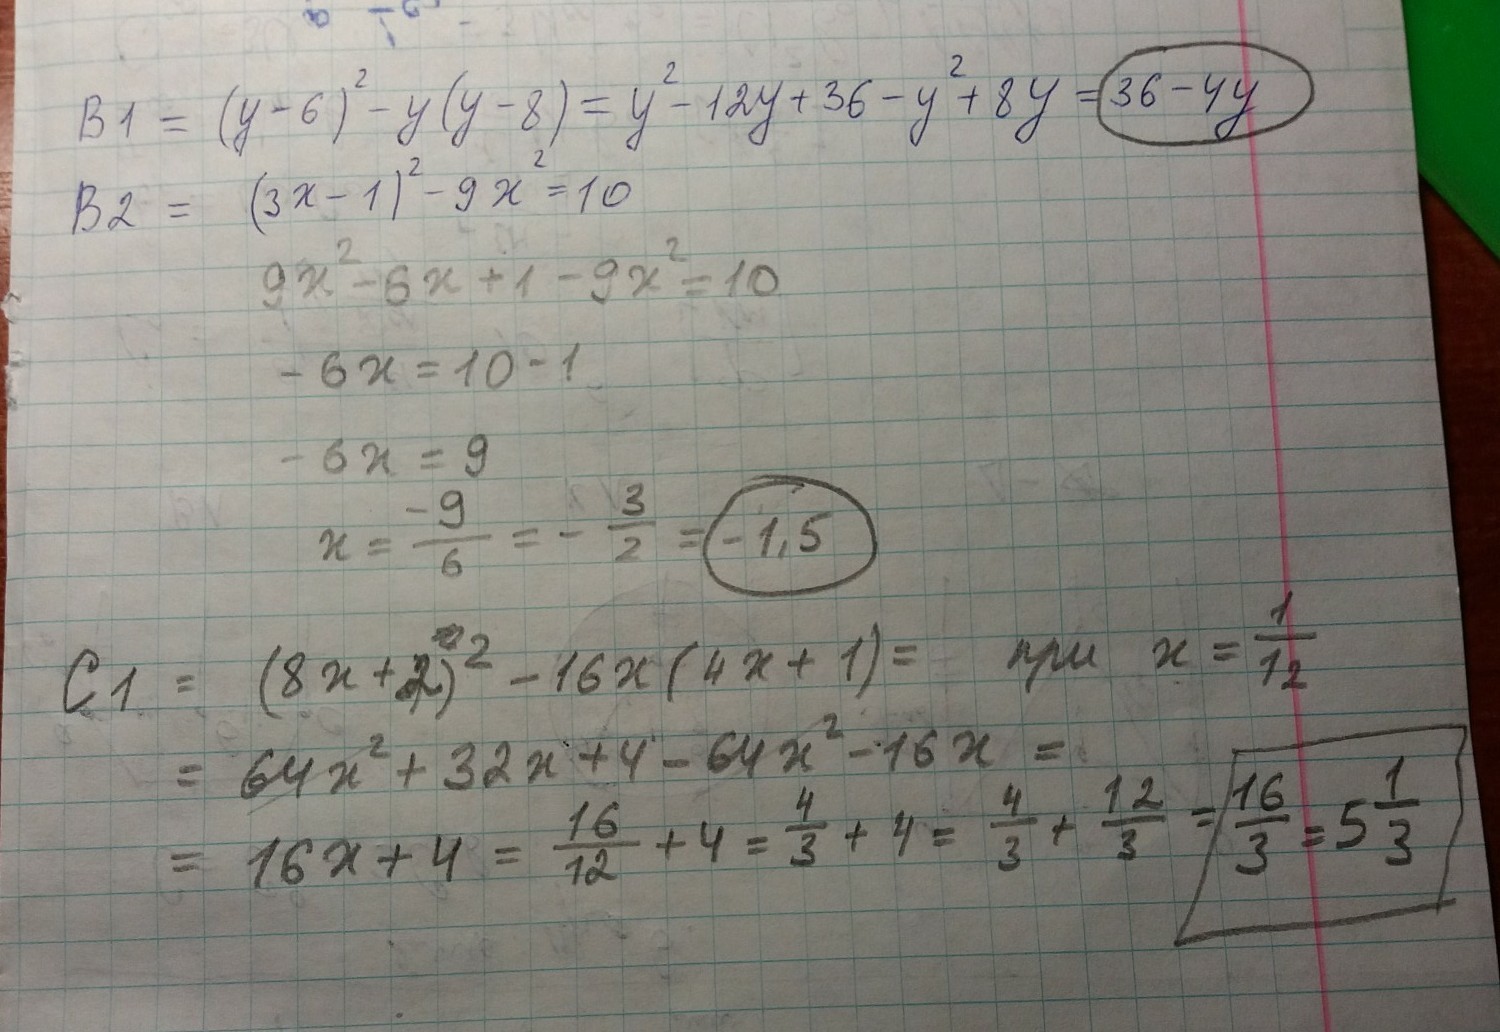 B1 = (y-6)² - y(y-8) = y² - 12y + 36 - y² + 8y = 36 - 4y
B2 = (3x-1)² - 9x² = 10
9x² - 6x + 1 - 9x² = 10
-6x = 10 - 1
-6x = 9
x = -9/6 = -3/2 = -1,5
C1 = (8x+2)² - 16x(4x+1) = при x = 1/12
= 64x² + 32x + 4 - 64x² - 16x =
= 16x + 4 = 16/12 + 4 = 4/3 + 4 = 4/3 + 12/3 = 16/3 = 5 1/3